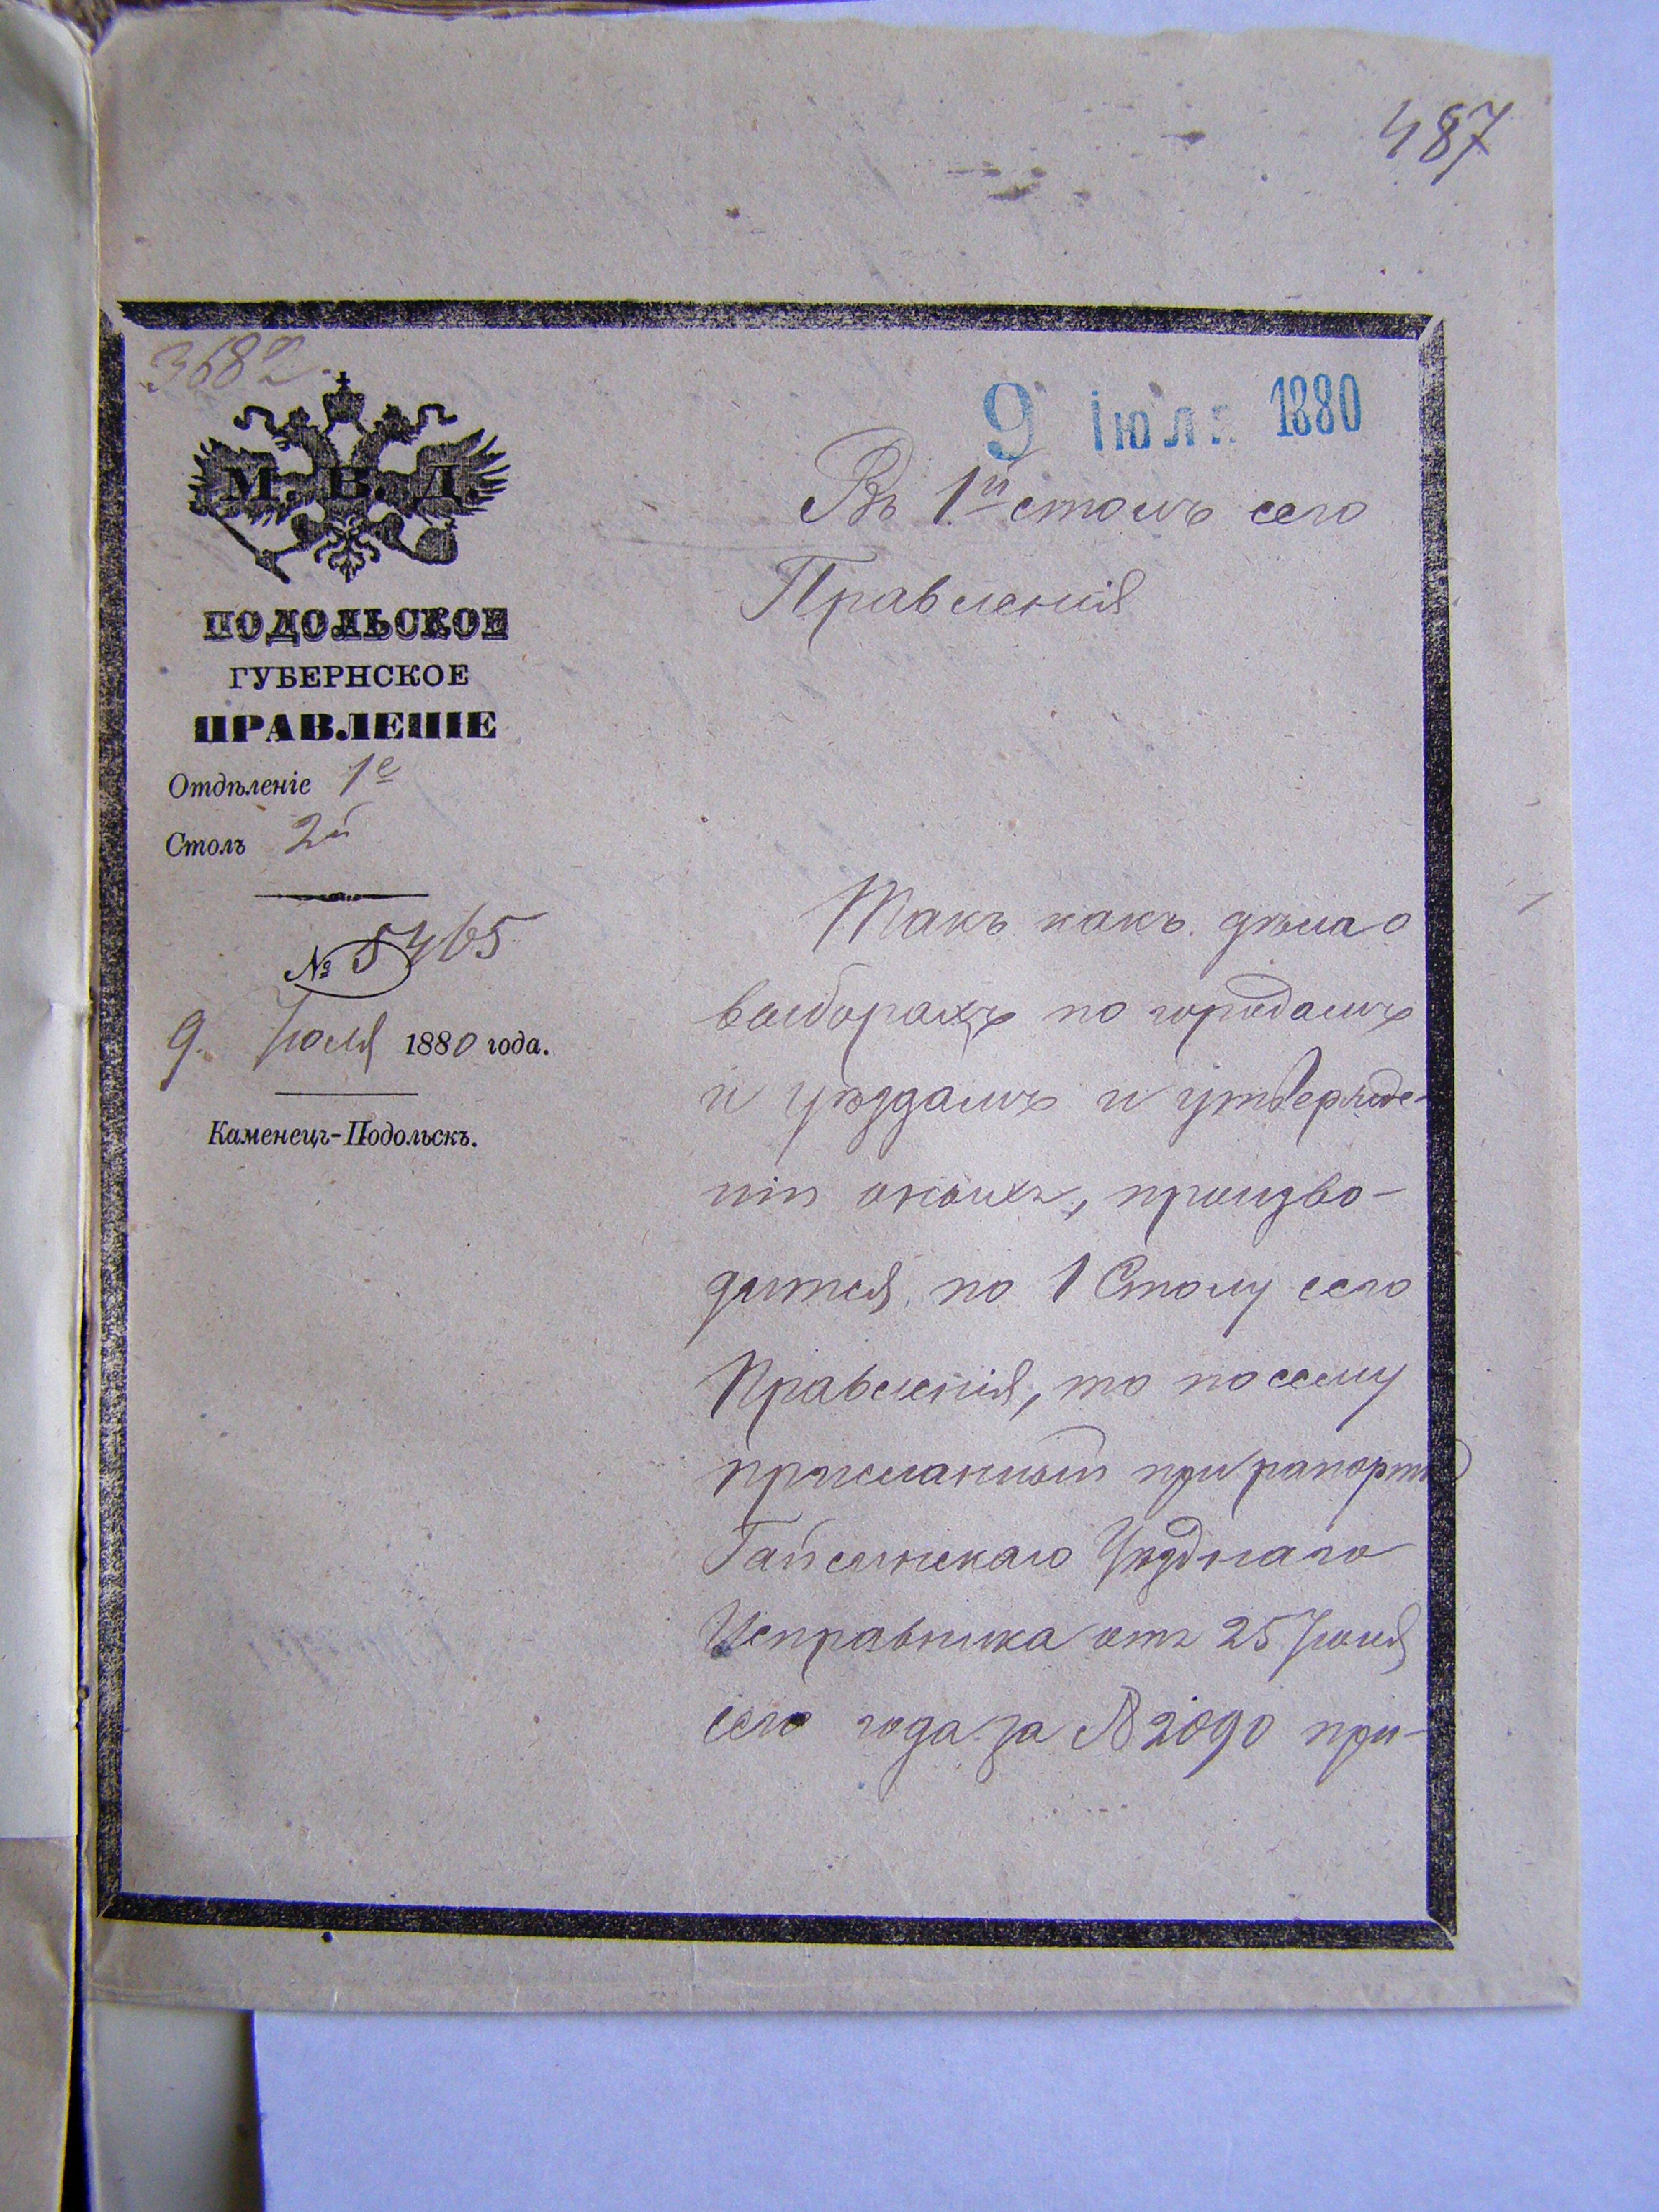 487
3682.
М. В. Д.
ПОДОЛЬСКОЕ
ГУБЕРНСКОЕ
ПРАВЛЕНІЕ
Отдѣленіе 1е
Столъ 2й
№ 5465
9. Іюля 1880 года.
Каменецъ-Подольскъ.
9 Іюля 1880
Въ 1.й столъ сего
Правленія
Такъ какъ дѣла о
выборахъ по городамъ
и уѣздамъ и утвержде-
ніи оныхъ, произво-
дится по 1 Столу сего
Правленія, то посему
присланный при рапортѣ
Гайсинскаго Уѣзднаго
Исправника отъ 25 Іюня
сего года за № 2090 при-